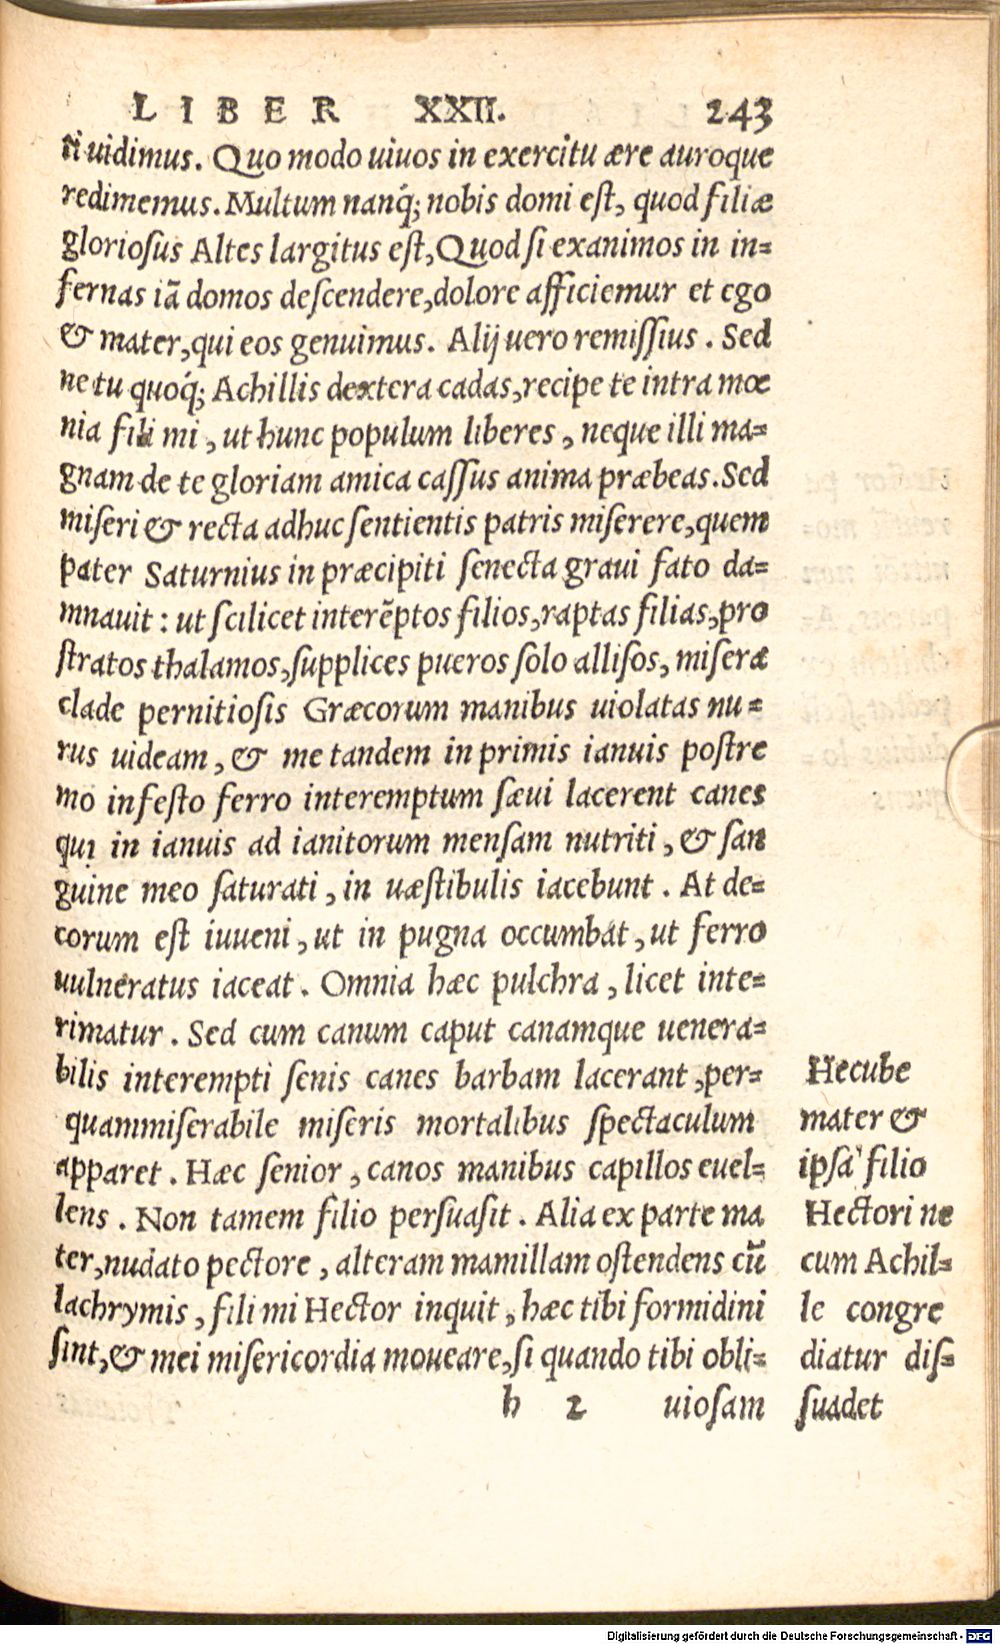 LIBER XXII. 243
ti uidimus. Quo modo uiuos in exercitu ære auroque
redimemus. Multum nanq́; nobis domi est, quod filiæ
gloriosus Altes largitus est, Quod si exanimos in in=
fernas iã domos descendere, dolore afficiemur et ego
& mater, qui eos genuimus. Alij uero remissius. Sed
ne tu quoq́; Achillis dextera cadas, recipe te intra mœ
nia fili mi, ut hunc populum liberes, neque illi ma=
gnam de te gloriam amica cassus anima præbeas. Sed
miseri & recta adhuc sentientis patris miserere, quem
pater Saturnius in præcipiti senecta graui fato da=
mnauit: ut scilicet interẽptos filios, raptas filias, pro
stratos thalamos, supplices pueros solo allisos, miseræ
clade pernitiosis Græcorum manibus uiolatas nu=
rus uideam, & me tandem in primis ianuis postre
mo infesto ferro interemptum sæui lacerent canes
qui in ianuis ad ianitorum mensam nutriti, & san
guine meo saturati, in uæstibulis iacebunt. At de=
corum est iuueni, ut in pugna occumbat, ut ferro
uulneratus iaceat. Omnia hæc pulchra, licet inte=
rimatur. Sed cum canum caput canamque uenera=
bilis interempti senis canes barbam lacerant, per=
quammiserabile miseris mortalibus spectaculum
apparet. Hæc senior, canos manibus capillos euel=
lens. Non tamem filio persuasit. Alia ex parte ma
ter, nudato pectore, alteram mamillam ostendens cũ
lachrymis, fili mi Hector inquit, hæc tibi formidini
sint, & mei misericordia moueare, si quando tibi obli=
h 2 uiosam
Hecube
mater &
ipsa filio
Hectori ne
cum Achil=
le congre
diatur dis=
suadet
Digitalisierung gefördert durch die Deutsche Forschungsgemeinschaft - DFG